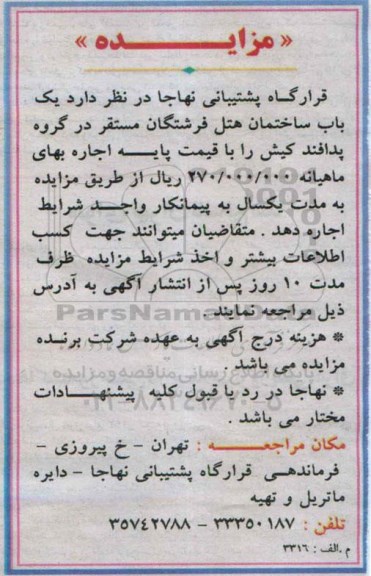 « مزایـــــــده »
قرارگاه پشتیبانی نهاجا در نظر دارد یک
باب ساختمان هتل فرشتگان مستقر در گروه
پدافند کیش را با قیمت پایـــه اجاره بهای
ماهیانه ۲۷۰/۰۰۰/۰۰۰ ریال از طریق مزایده
به مدت یکسال به پیمانکار واجـــد شرایط
اجاره دهد . متقاضیان میتوانند جهت کسب
اطلاعات بیشتر و اخذ شرایط مزایده ظرف
مدت ۱۰ روز پس از انتشار آگهی به آدرس
ذیل مراجعه نمایند .
* هزینه درج آگهی به عهده شرکت برنـده
مزایده می باشد .
* نهاجا در رد یا قبول کلیه پیشنهـــادات
مختار می باشد .
مکان مراجعـــــه : تهران - خ پیروزی -
فرماندهـی قرارگاه پشتیبانی نهاجا - دایره
ماتریل و تهیه
تلفن : ۳۳۳۵۰۱۸۷ - ۳۵۷۴۲۷۸۸
م .الف : ۳۳۱۶
ParsNamadData